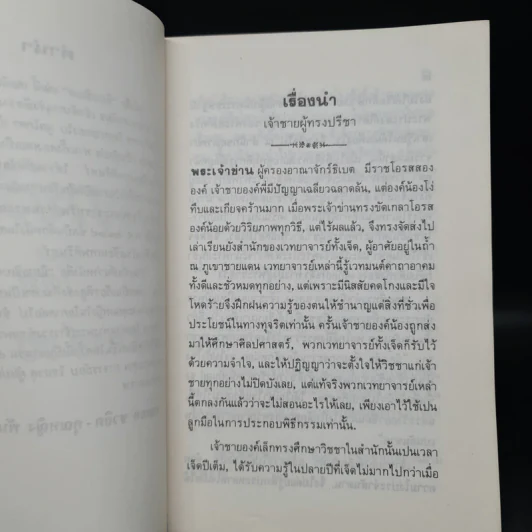 เรื่องนำ
เจ้าชายผู้ทรงปรีชา
พระเจ้าข่าน ผู้ครองอาณาจักร์ธิเบต มีราชโอรสสอง
องค์ เจ้าชายองค์พี่มีปัญญาเฉลียวฉลาดล้น, แต่องค์น้องโง่
ทึบและเกียจคร้านมาก เมื่อพระเจ้าข่านทรงขัดเกลาโอรส
องค์น้อยด้วยวิริยภาพทุกวิธี, แต่ไร้ผลแล้ว, จึงทรงจัดส่งไป
เล่าเรียนยังสำนักของเวทยาจารย์ทั้งเจ็ด, ผู้อาศัยอยู่ในถ้ำ
ณ ภูเขาชายแดน เวทยาจารย์เหล่านี้รู้เวทมนต์คาถาอาคม
ทั้งดีและชั่วหมดทุกอย่าง, แต่เพราะมีนิสสัยคดโกงและมีใจ
โหดร้ายจึงฝึกฝนความรู้ของตนให้ชำนาญแต่สิ่งที่ชั่วเพื่อ
ประโยชน์ในทางทุจริตเท่านั้น ครั้นเจ้าชายองค์น้องถูกส่ง
มาให้ศึกษาศิลปศาสตร์, พวกเวทยาจารย์ทั้งเจ็ดก็รับไว้
ด้วยความจำใจ, และให้ปฏิญญาว่าจะตั้งใจให้วิชชาแก่เจ้า
ชายทุกอย่างไม่ปิดบังเลย, แต่แท้จริงพวกเวทยาจารย์เหล่า
นี้ตกลงกันแล้วว่าจะไม่สอนอะไรให้เลย, เพียงเอาไว้ใช้เปน
ลูกมือในการประกอบพิธีกรรมเท่านั้น.
เจ้าชายองค์เล็กทรงศึกษาวิชชาในสำนักนั้นเปนเวลา
เจ็ดปีเต็ม, ได้รับความรู้ในปลายปีที่เจ็ดไม่มากไปกว่าเมื่อ